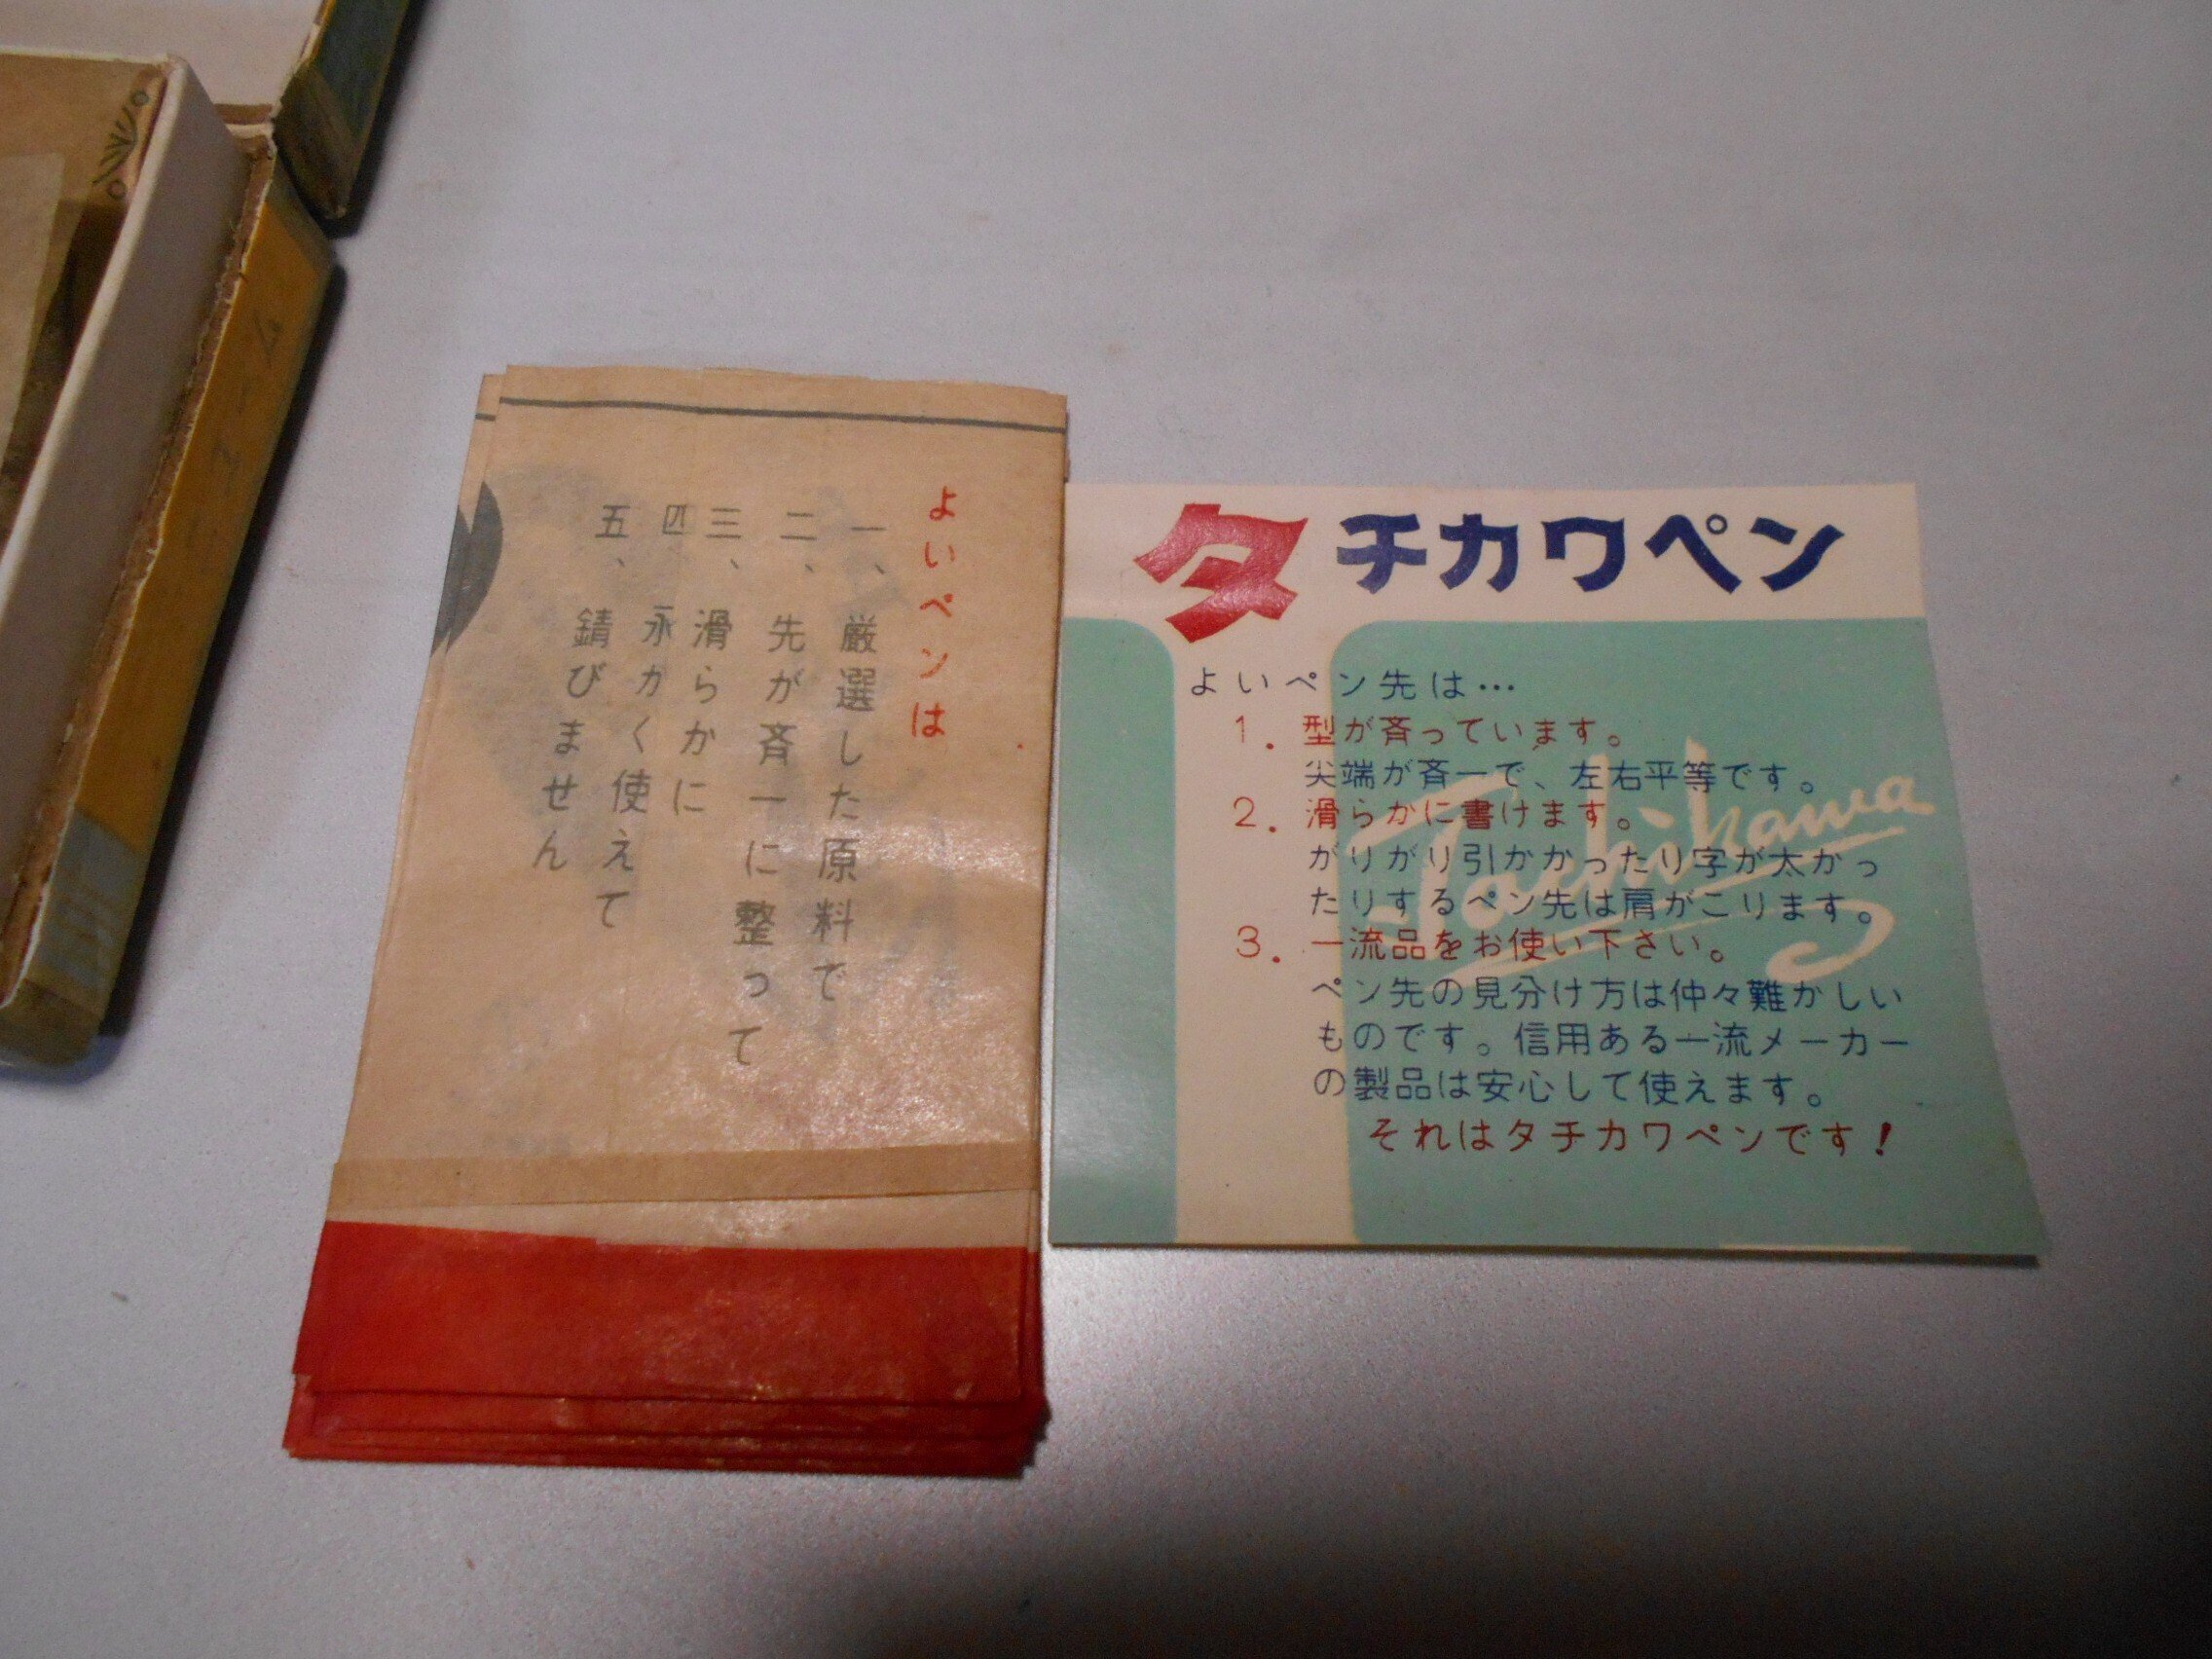 よいペンは
一、厳選した原料で
二、先が斉一に整って
三、滑らかに
四、永かく使えて
五、錆びません
タチカワペン
よいペン先は…
1. 型が斉っています。
尖端が斉一で、左右平等です。
2. 滑らかに書けます。
がりがり引かかったり字が太かっ
たりするペン先は肩がこります。
3. 一流品をお使い下さい。
ペン先の見分け方は仲々難かしい
ものです。信用ある一流メーカー
の製品は安心して使えます。
それはタチカワペンです!
Tachikawa